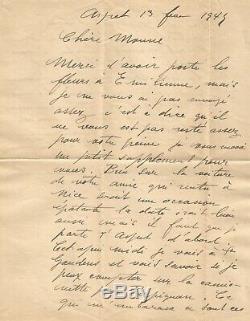 Aspet 13 fev 1945
Chère Mounne
Merci d'avoir porté les
fleurs à Emilienne, mais
je ne vous ai pas envoyé
assez c'est à dire qu'il
ne vous est pas resté assez
pour votre peine je vous
un petit supplément pour
vous. sur la voiture
de votre amie qui rentre à
Nice avait une occasion
épatante la date était bien
aussi mais il faut que je
parte d'Aspet d'abord.
cet après midi je vais à St
Gaudens et vais savoir si je
peux compter sur la camion
nette Perpignan. Ce
qui m'embarasse à tout ces
ebay